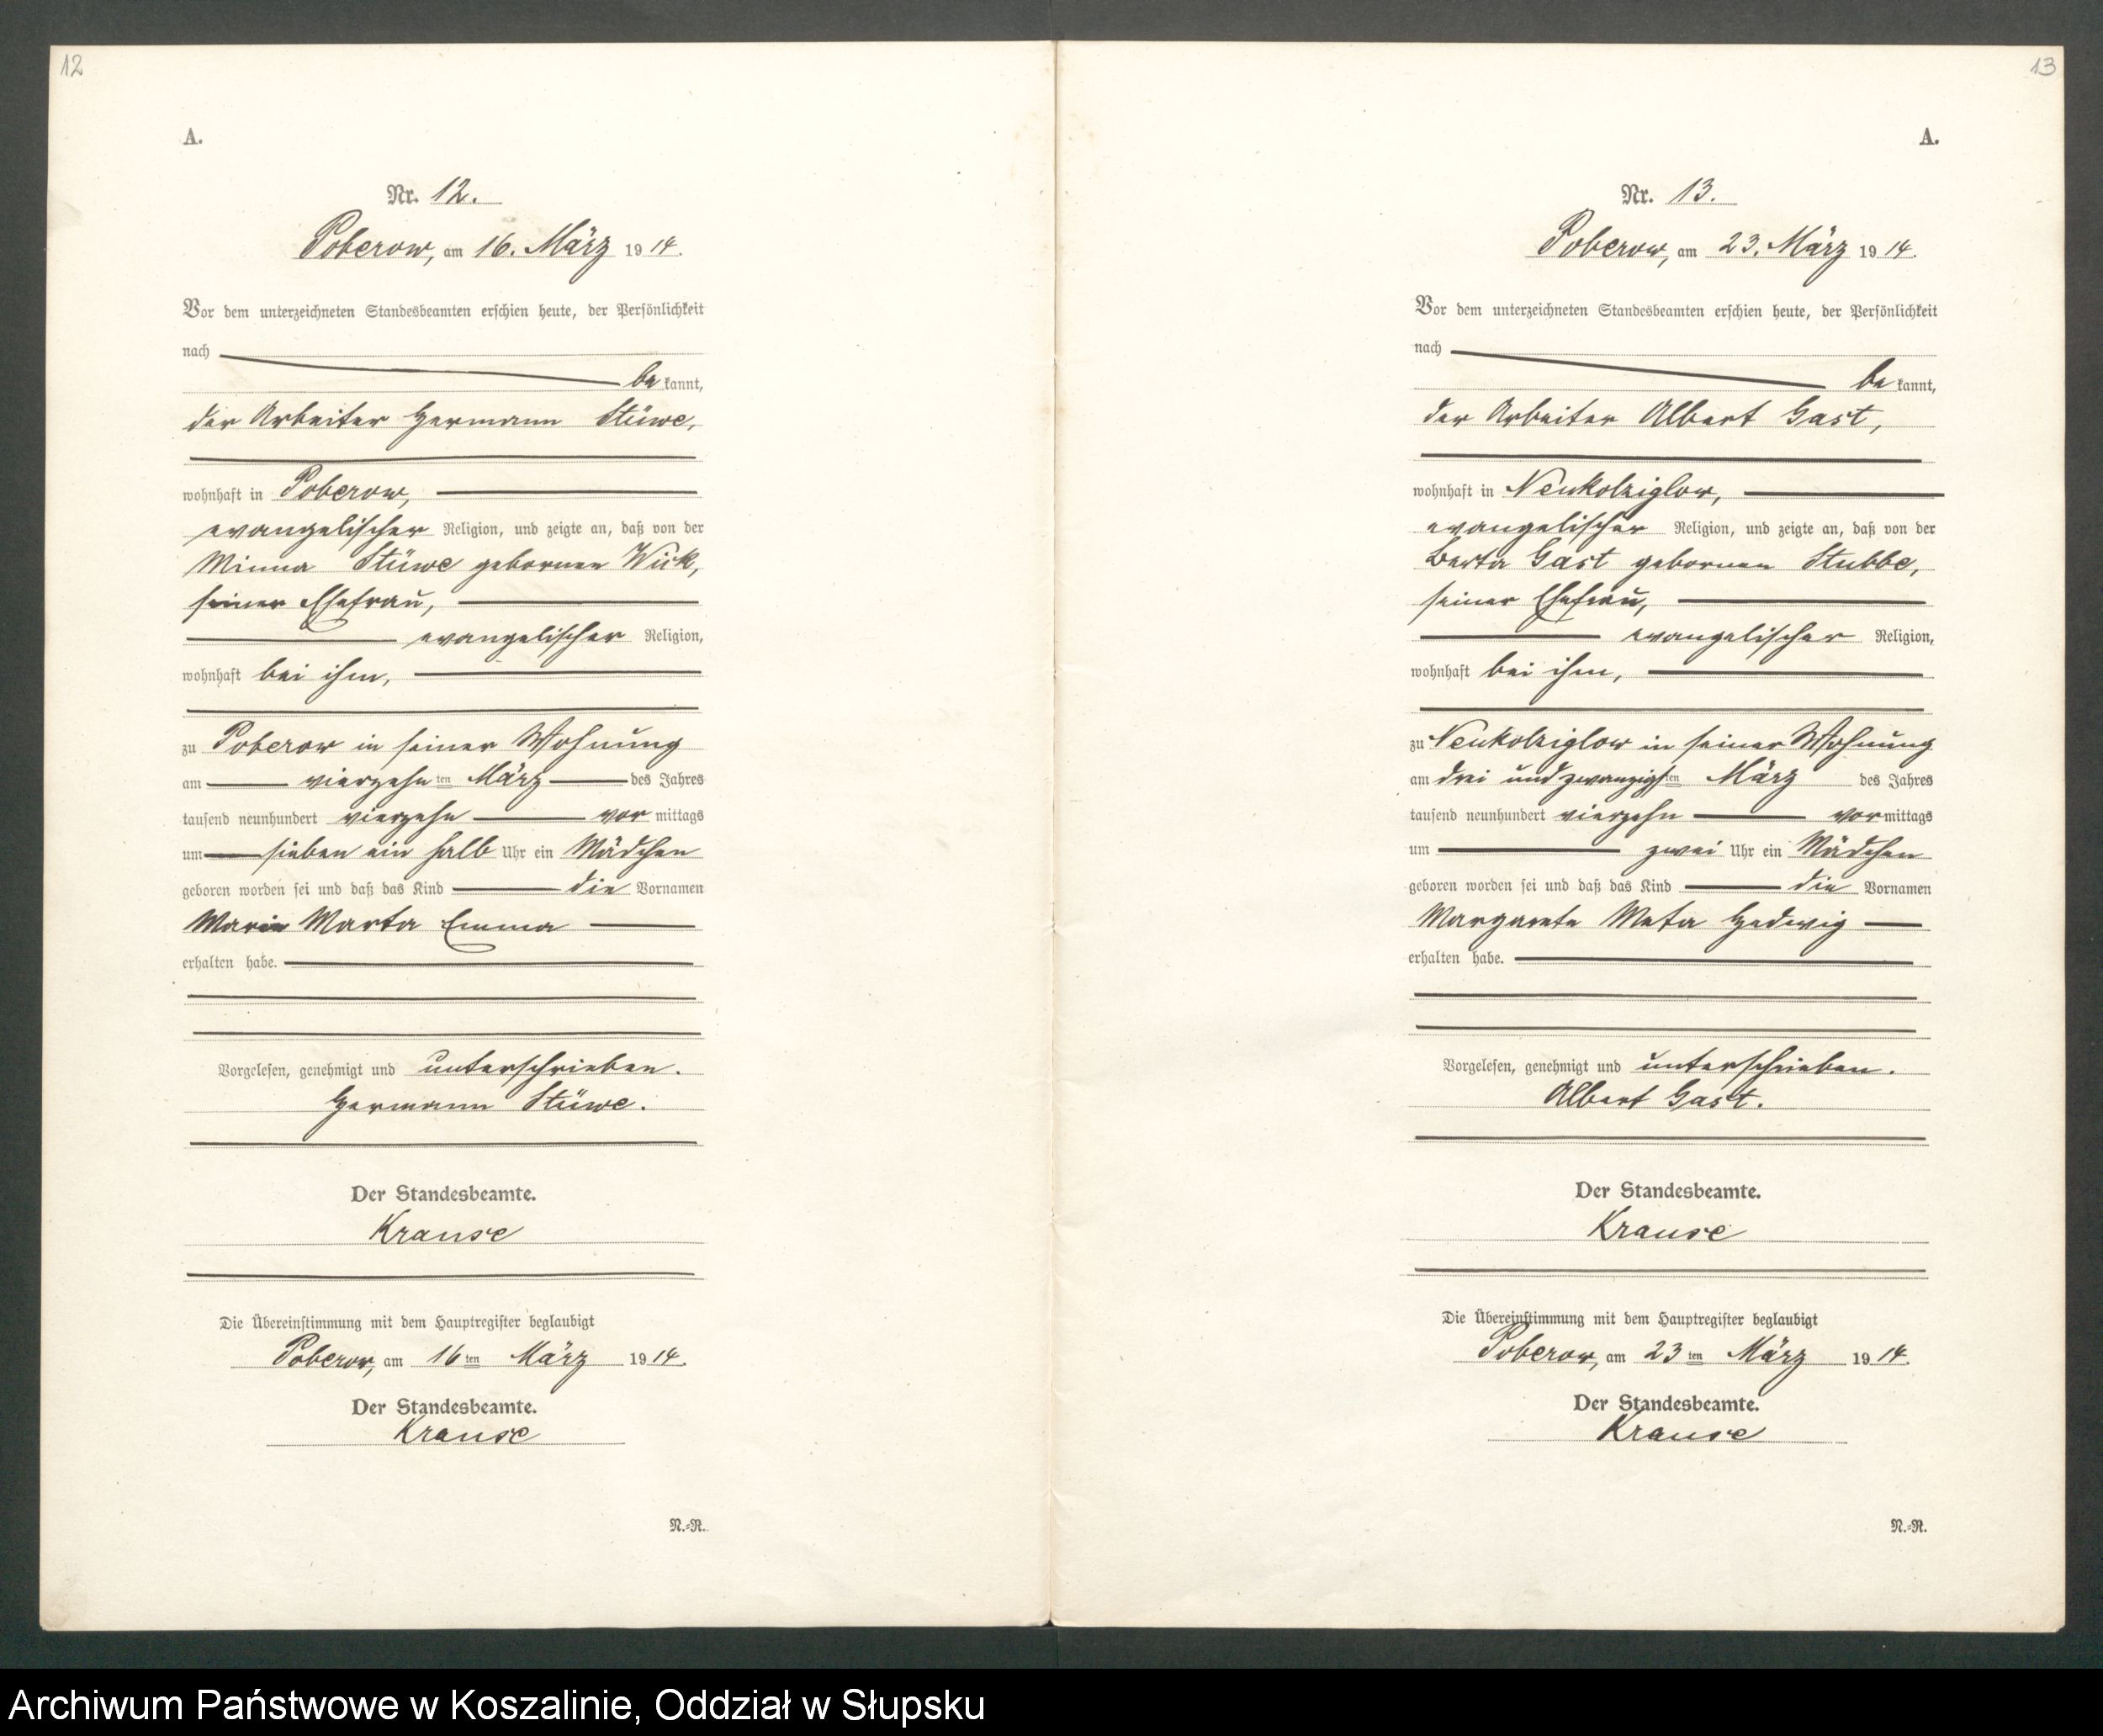 12
A.
Nr. 12.
Poberow, am 16. März 1914.
Vor dem unterzeichneten Standesbeamten erschien heute, der Persönlichkeit
nach
be kannt,
der Arbeiter Hermann Stüwe,
wohnhaft in Poberow,
evangelischer Religion, und zeigte an, daß von der
Minna Stüwe gebornen Wick,
seiner Ehefrau,
evangelischer Religion,
wohnhaft bei ihm,
zu Poberow in seiner Wohnung
am vierzehn ten März des Jahres
tausend neunhundert vierzehn vor mittags
um sieben ein halb Uhr ein Mädchen
geboren worden sei und daß das Kind die Vornamen
Marie Marta Emma
erhalten habe.
Vorgelesen, genehmigt und unterschrieben.
Hermann Stüwe.
Der Standesbeamte.
Krause
Die Übereinstimmung mit dem Hauptregister beglaubigt
Poberow, am 16 ten März 1914.
Der Standesbeamte.
Krause
N.-R.
13
A.
Nr. 13.
Poberow, am 23. März 1914.
Vor dem unterzeichneten Standesbeamten erschien heute, der Persönlichkeit
nach
be kannt,
der Arbeiter Albert Gast,
wohnhaft in Neukolziglow,
evangelischer Religion, und zeigte an, daß von der
Berta Gast gebornen Stubbe,
seiner Ehefrau,
evangelischer Religion,
wohnhaft bei ihm,
zu Neukolziglow in seiner Wohnung
am drei und zwanzigsten März des Jahres
tausend neunhundert vierzehn vormittags
um zwei Uhr ein Mädchen
geboren worden sei und daß das Kind die Vornamen
Margarete Meta Hedwig
erhalten habe.
Vorgelesen, genehmigt und unterschrieben.
Albert Gast.
Der Standesbeamte.
Krause
Die Übereinstimmung mit dem Hauptregister beglaubigt
Poberow, am 23 ten März 1914.
Der Standesbeamte.
Krause
N.-R.
Archiwum Państwowe w Koszalinie, Oddział w Słupsku